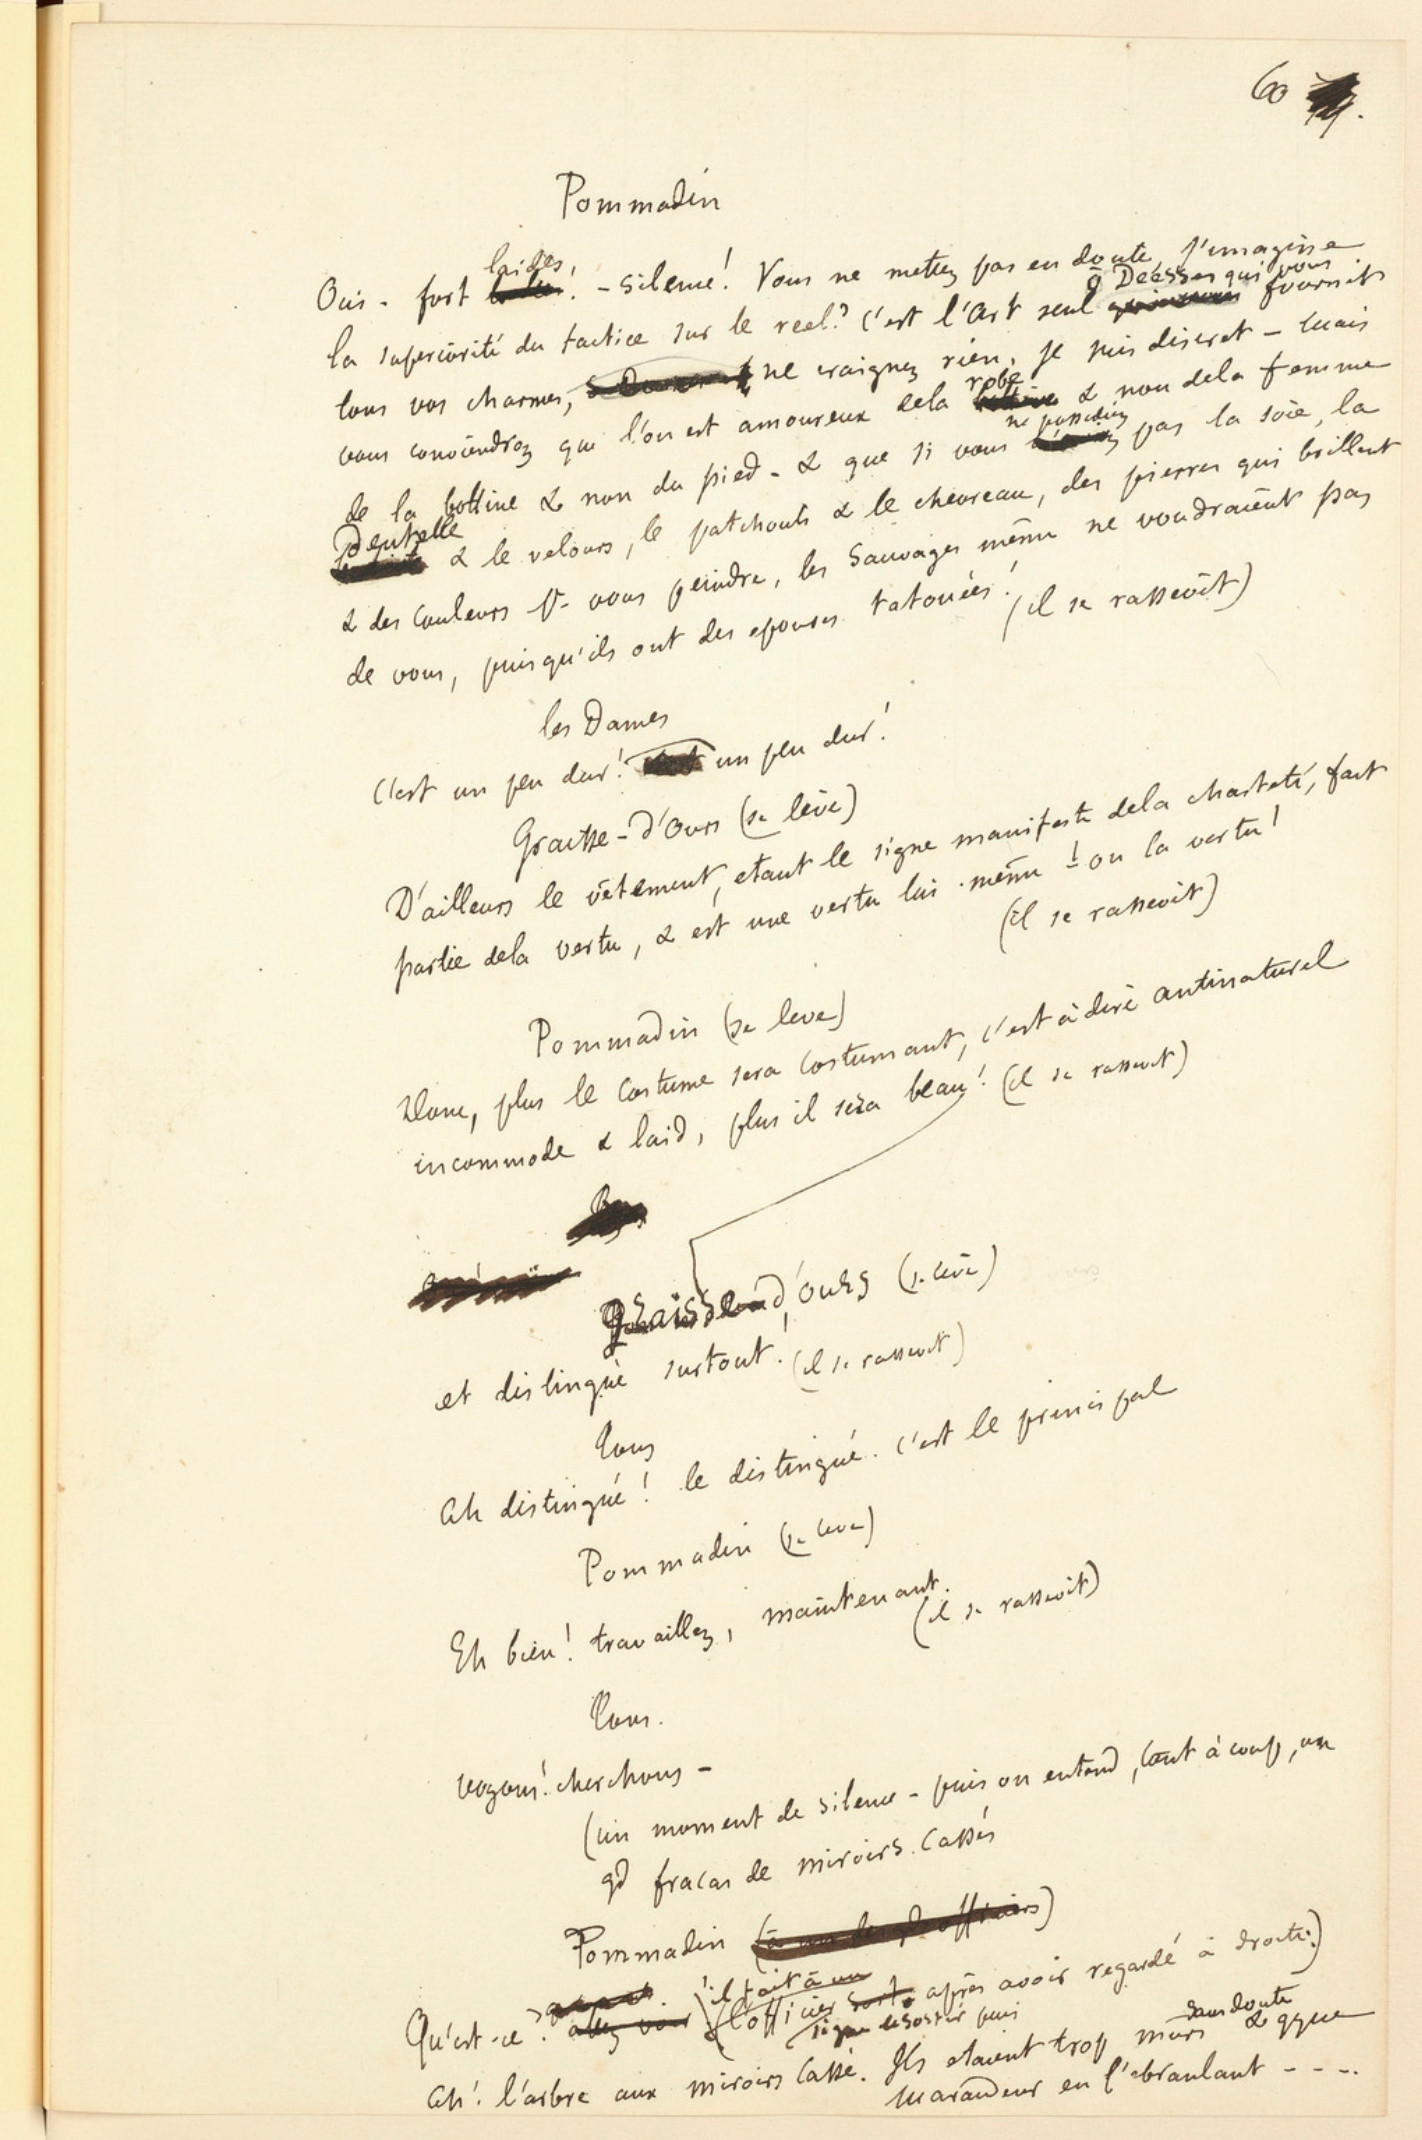 60
Pommadin
laides
Oui - fort ! - silence! Vous ne mettez pas en doute, j'imagine
ô Déesses qui vous
la supériorité du factice sur le reel? c'est l'art seul fournit
tous vos charmes, ne craignez rien, je suis discret - mais
robe
vous conviendrez que l'on est amoureux dela bottine & non dela femme
ne possédiez
de la bottine & non du pied - & que si vous pas la soie, la
Dentelle
& le velours, le patchouli & le chevreau, des pierres qui brillent
& des couleurs pr vous peindre, les Sauvages même ne voudraient pas
de vous, puisqu'ils ont des epouses tatouées! (il se rasseoit)
les Dames
C'est un peu dur! c'est un peu dur!
Graisse-d'Ours (se lève)
D'ailleurs le vêtement, etant le signe manifeste dela chasteté, fait
partie dela vertu, & est une vertu lui-même! ou la vertu!
(il se rasseoit)
Pommadin (se leve)
Donc, plus le costume sera costumant, c'est à dire antinaturel
incommode & laid, plus il sera beau! (il se rasseoit)
graisse d'ours (se lève)
et distingué surtout! (il se rasseoit)
Tous
Ah distingué! le distingué. c'est le principal
Pommadin (se leve)
Eh bien! travaillez, maintenant.
(il se rasseoit)
Tous.
voyons! cherchons -
(un moment de silence - puis on entend, tout à coup, un
gd fracas de miroirs cassés
Pommadin (à un des gds officiers)
il fait à un
Qu'est-ce? allez voir (l'officier sort. après avoir regardé à droite.)
signe de sortir puis
sans doute
Ah! l'arbre aux miroirs cassé. Ils etaient trop mûrs & qque
maraudeur en l'ebranlant - - - .